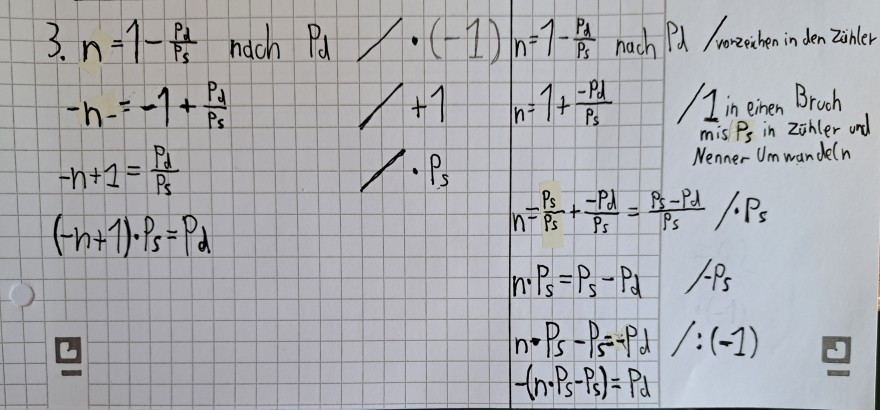 3. n = 1 - Pd/Ps nach Pd / · (-1)
-n = -1 + Pd/Ps / +1
-n+1 = Pd/Ps / · Ps
(-n+1) · Ps = Pd
n = 1 - Pd/Ps nach Pd / vorzeichen in den Zähler
n = 1 + -Pd/Ps / 1 in einen Bruch
mis Ps in Zähler und
Nenner Umwandeln
n = Ps/Ps + -Pd/Ps = Ps-Pd/Ps / · Ps
n · Ps = Ps - Pd / -Ps
n · Ps - Ps = -Pd / : (-1)
-(n · Ps - Ps) = Pd